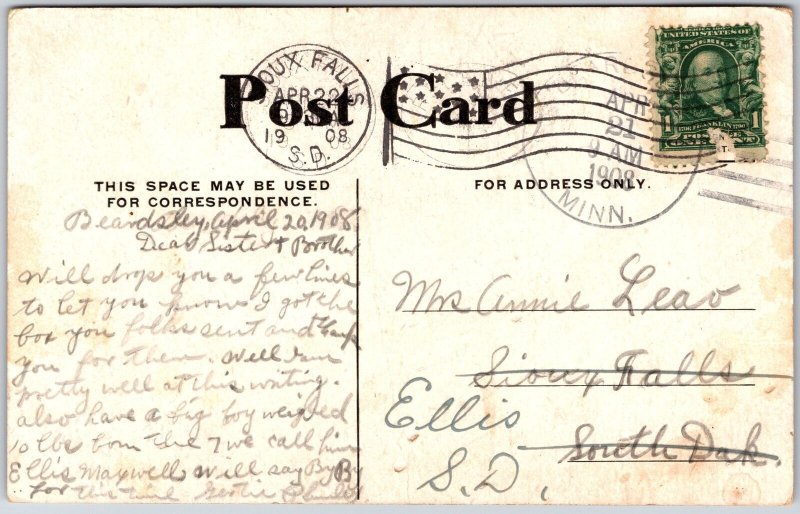 Post Card
SIOUX FALLS
APR 22
1908
S.D.
APR
21
9 AM
1908
MINN.
UNITED STATES OF
AMERICA
1 1
1706 FRANKLIN 1790
THIS SPACE MAY BE USED
FOR CORRESPONDENCE.
FOR ADDRESS ONLY.
Beardsley, April 20, 1908
Dear Sister & Brother
Will drops you a few lines
to let you know I got the
box you folks sent and thank
you for them. Well I am
pretty well at this writing.
also have a big boy weighed
10 lbs born the 7 we call him
Ellis Maxwell, will say By By
for this time Gertie
Mrs Annie Leav
Sioux Falls
South Dak.
Ellis
S.D.